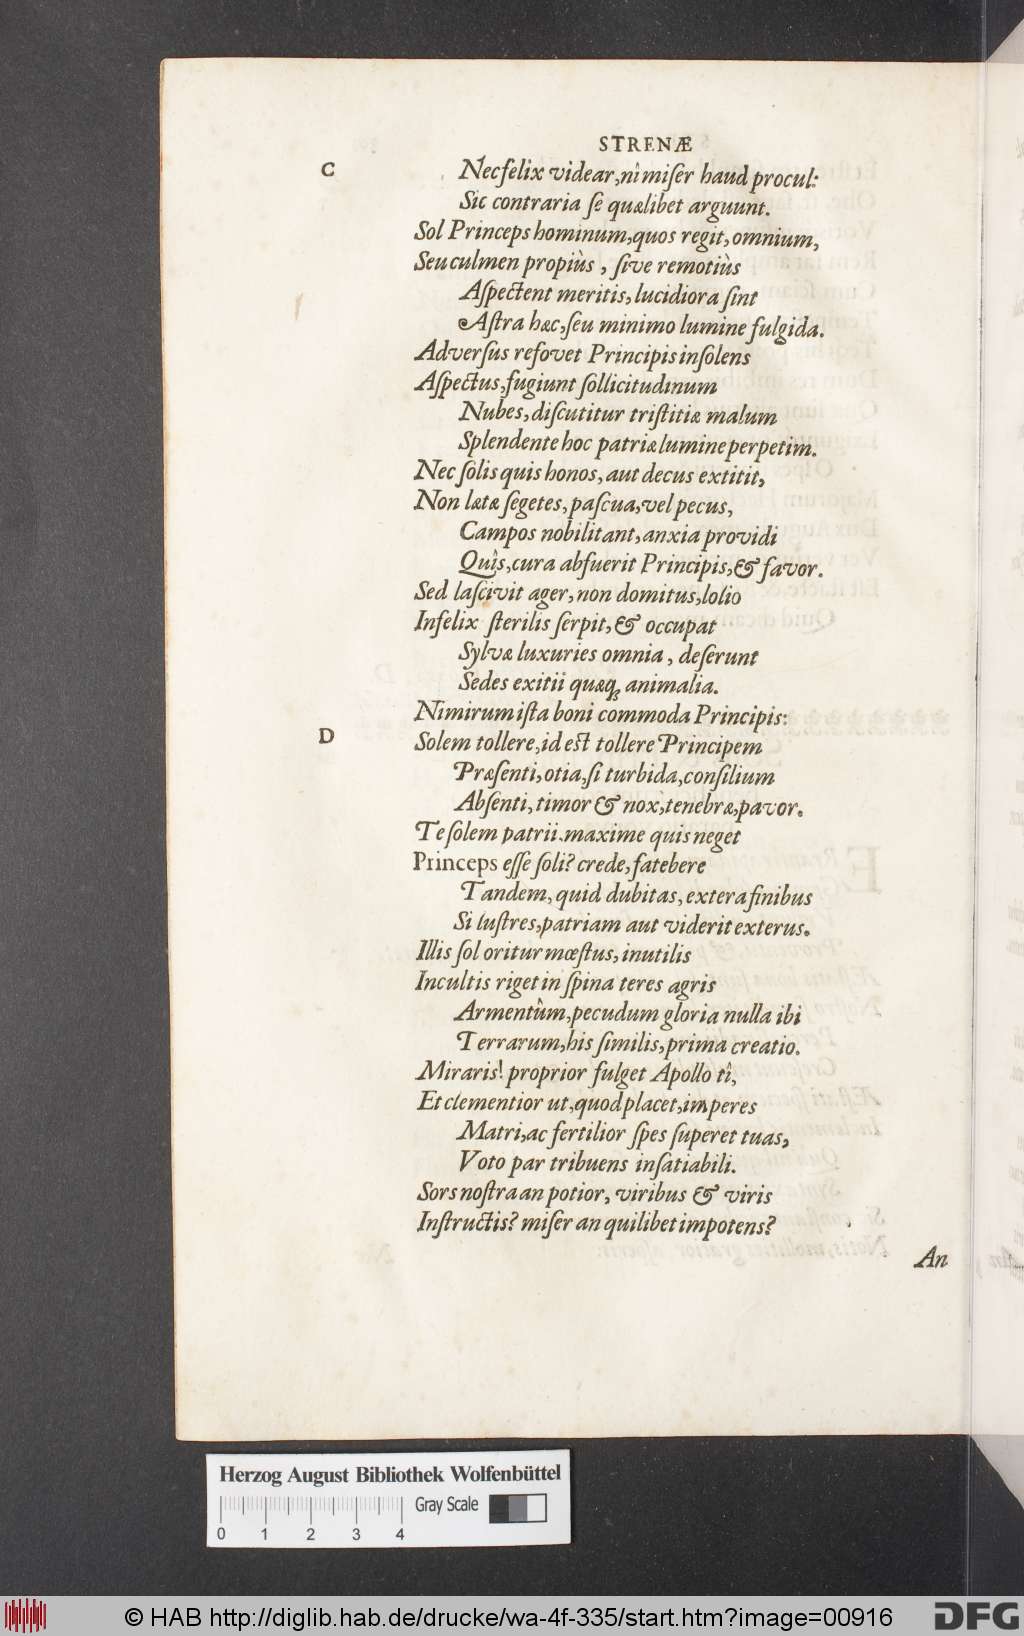 STRENÆ
C
Nec felix videar, nî miser haud procul:
Sic contraria se quælibet arguunt.
Sol Princeps hominum, quos regit, omnium,
Seu culmen propiùs, sive remotiùs
Aspectent meritis, lucidiora sint
Astra hæc, seu minimo lumine fulgida.
Adversus refovet Principis insolens
Aspectus, fugiunt sollicitudinum
Nubes, discutitur tristitiæ malum
Splendente hoc patriæ lumine perpetim.
Nec solis quis honos, aut decus extitit,
Non lætæ segetes, pascua, vel pecus,
Campos nobilitant, anxia providi
Quîs, cura absuerit Principis, & favor.
Sed lascivit ager, non domitus, lolio
Infelix sterilis serpit, & occupat
Sylvæ luxuries omnia, deserunt
Sedes exitii quæq; animalia.
Nimirum ista boni commoda Principis:
D
Solem tollere, id est tollere Principem
Præsenti, otia, si turbida, consilium
Absenti, timor & nox, tenebræ, pavor.
Te solem patrii. maxime quis neget
Princeps esse soli? crede, fatebere
Tandem, quid dubitas, extera finibus
Si lustres, patriam aut viderit exterus.
Illis sol oritur mœstus, inutilis
Incultis riget in spina teres agris
Armentûm, pecudum gloria nulla ibi
Terrarum, his similis, prima creatio.
Miraris! proprior fulget Apollo tî,
Et clementior ut, quod placet, imperes
Matri, ac fertilior spes superet tuas,
Voto par tribuens insatiabili.
Sors nostra an potior, viribus & viris
Instructis? miser an quilibet impotens?
An
Herzog August Bibliothek Wolfenbüttel
Gray Scale
0 1 2 3 4
© HAB http://diglib.hab.de/drucke/wa-4f-335/start.htm?image=00916
DFG